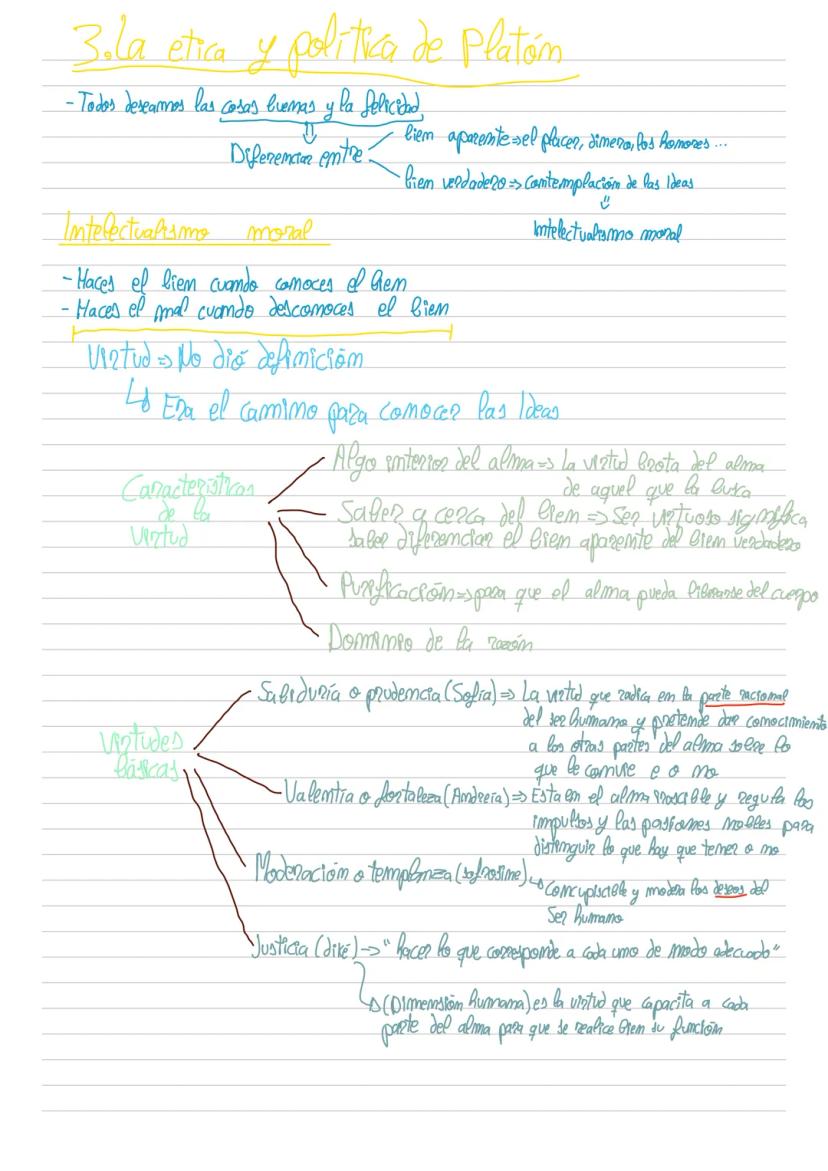 3. La etica y política de Platón
- Todos deseamos las cosas buenas y la felicidad
Diferenciar entre
bien aparente ⇒ el placer, dinero, los honores ...
bien verdadero ⇒ Contemplación de las Ideas
⇓
Intelectualismo moral
Intelectualismo moral
- Haces el bien cuando conoces el bien
- Haces el mal cuando desconoces el bien
Virtud ⇒ No dió definición
↳ Era el camino para conocer las Ideas
Características
de la
Virtud
Algo interior del alma ⇒ La virtud brota del alma
de aquel que la busca
Saber a cerca del bien ⇒ Ser virtuoso significa
saber diferenciar el bien aparente del bien verdadero
Purificación ⇒ para que el alma pueda librarse del cuerpo
Dominio de la razón
Virtudes
básicas
Sabiduría o prudencia (Sofía) ⇒ La virtud que radica en la parte racional
del ser humano y pretende dar conocimiento
a los otras partes del alma sobre lo
que le convie e o no
Valentía o fortaleza (Andreía) ⇒ Esta en el alma irascible y regula los
impulsos y las pasiones nobles para
distinguir lo que hay que temer o no
Moderación o templanza (sofrosine)
↳ Concupiscible y modera los deseos del
Ser humano
Justicia (diké) → "hacer lo que corresponde a cada uno de modo adecuado"
(Dimensión humana) es la virtud que capacita a cada
parte del alma para que se realice bien su función